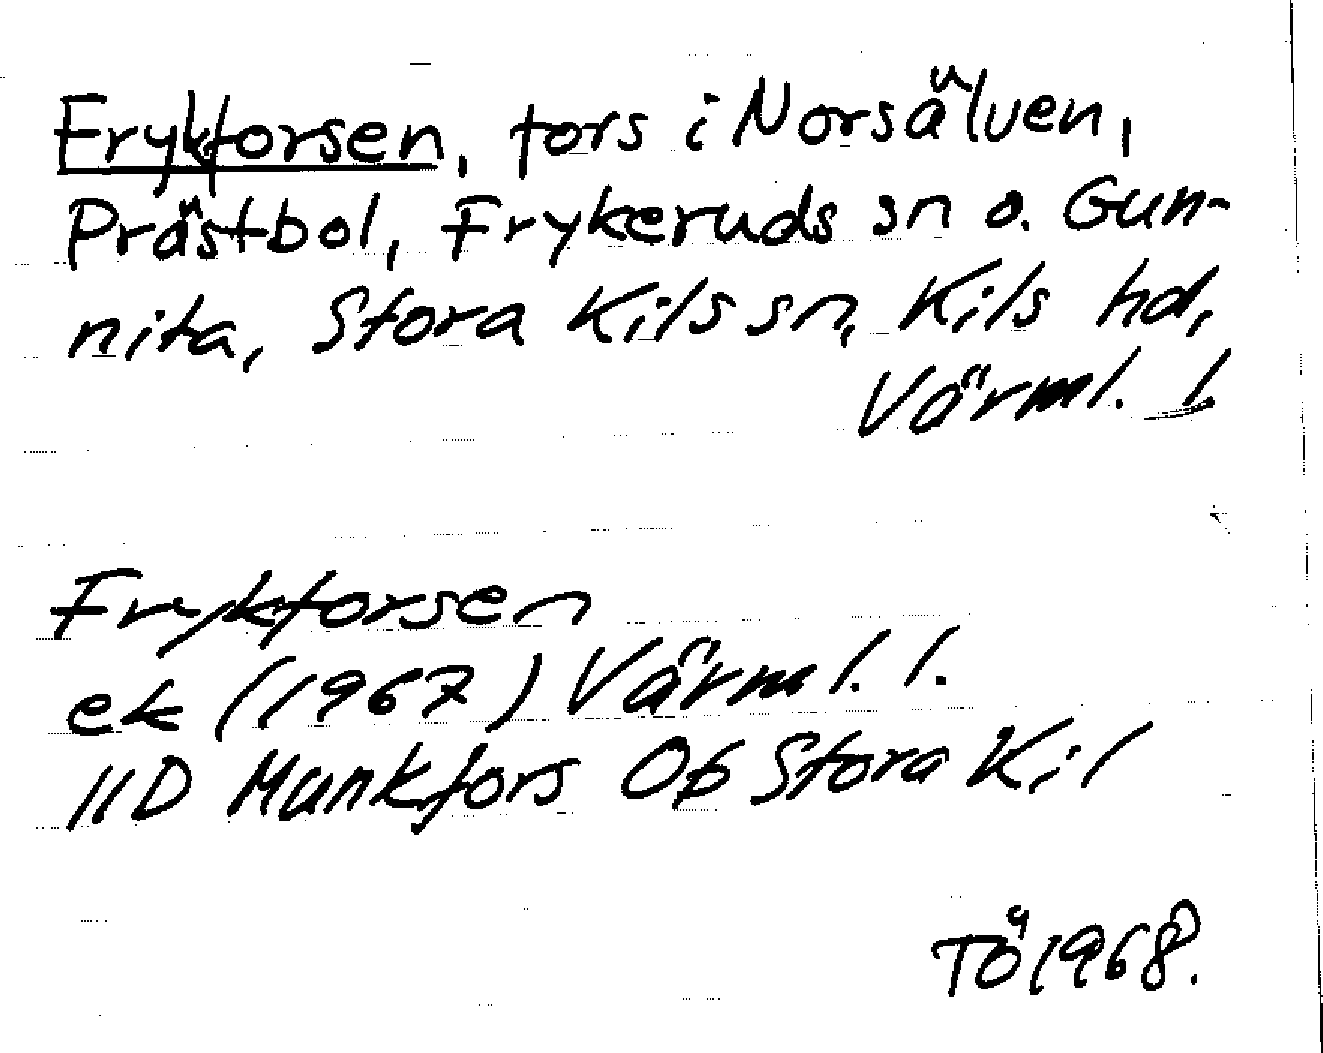 Frykforsen, fors i Norsälven,
Prästbol, Frykeruds sn o. Gun-
nita, Stora Kils sn, Kils hd,
Värml. l.
Frykforsen
ek (1967) Värml. l.
11D Munkfors Ob Stora Kil
TÖ 1968.